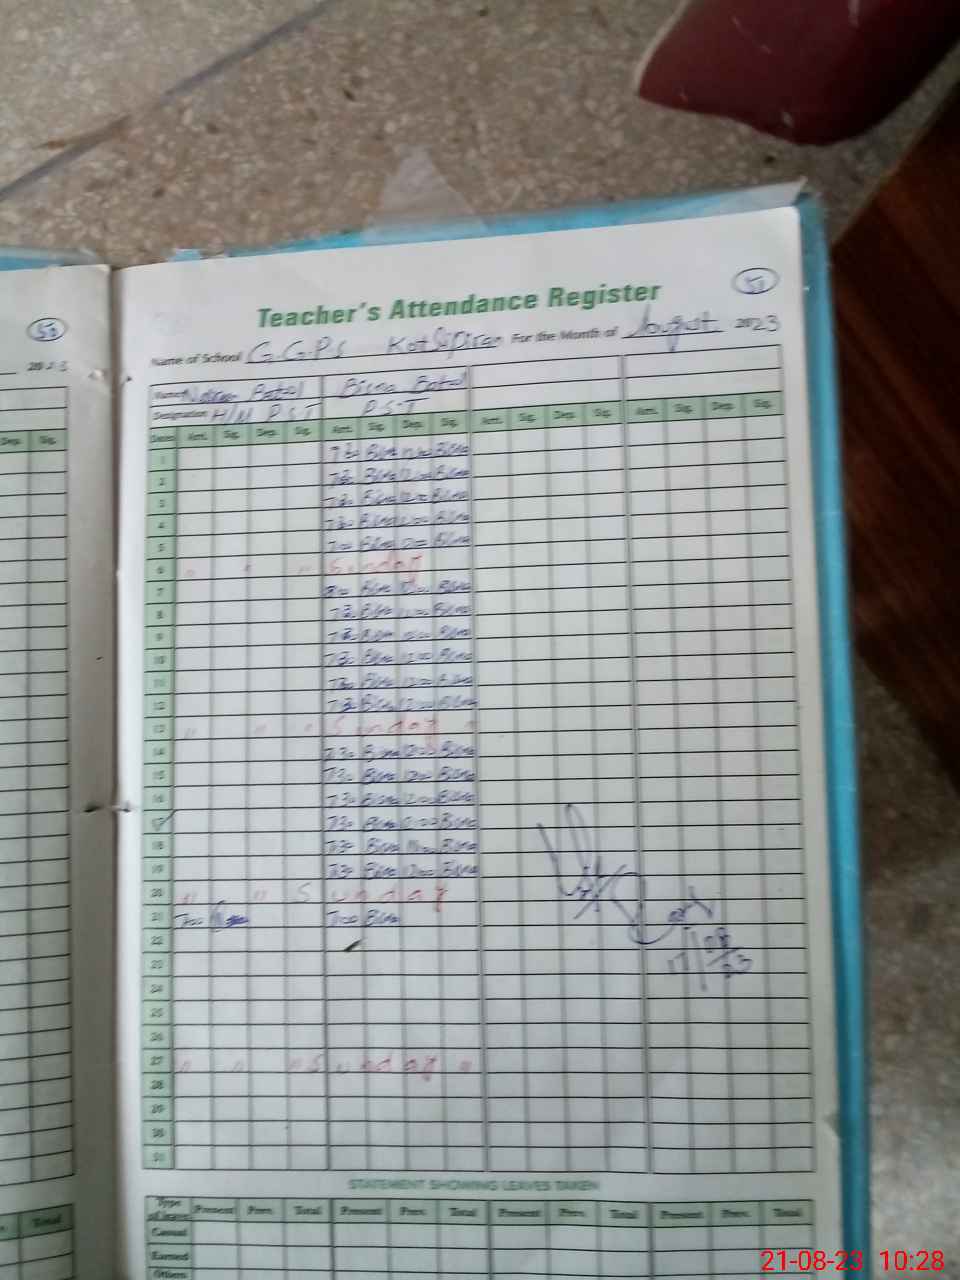 Teacher's Attendance Register
51
50
Name of School G.G.P.S Kot For the Month of August 2023
Name Batool Bisma Batool
Designation H/M P.S.T P.S.T
Dates Arr. Sig. Dep. Sig. Arr. Sig. Dep. Sig. Arr. Sig. Dep. Sig. Arr. Sig. Dep. Sig.
1 7:30 Bisma 12:00 Bisma
2 7:30 Bisma 12:00 Bisma
3 7:30 Bisma 12:00 Bisma
4 7:30 Bisma 12:00 Bisma
5 7:00 Bisma 12:00 Bisma
6 " " " Sunday
7 Bisma 12:00 Bisma
8 7:30 Bisma 12:00 Bisma
9 7:30 Bisma 12:00 Bisma
10 7:30 Bisma 12:00 Bisma
11 7:30 Bisma 12:00 Bisma
12 7:30 Bisma 12:00 Bisma
13 " " " Sunday "
14 7:30 Bisma 12:00 Bisma
15 7:30 Bisma 12:00 Bisma
16 7:30 Bisma 12:00 Bisma
17 7:30 Bisma 12:00 Bisma
18 7:30 Bisma Bisma
19 7:30 Bisma 12:00 Bisma
20 " " Sunday
21 7:00 7:00 Bisma
22
23
24
25
26
27 " " " Sunday "
28
29
30
31
17/08/23
STATEMENT SHOWING LEAVES TAKEN
Type of leave Present Prev. Total Present Prev. Total Present Prev. Total Present Prev. Total
Casual
Earned
Others
21-08-23 10:28